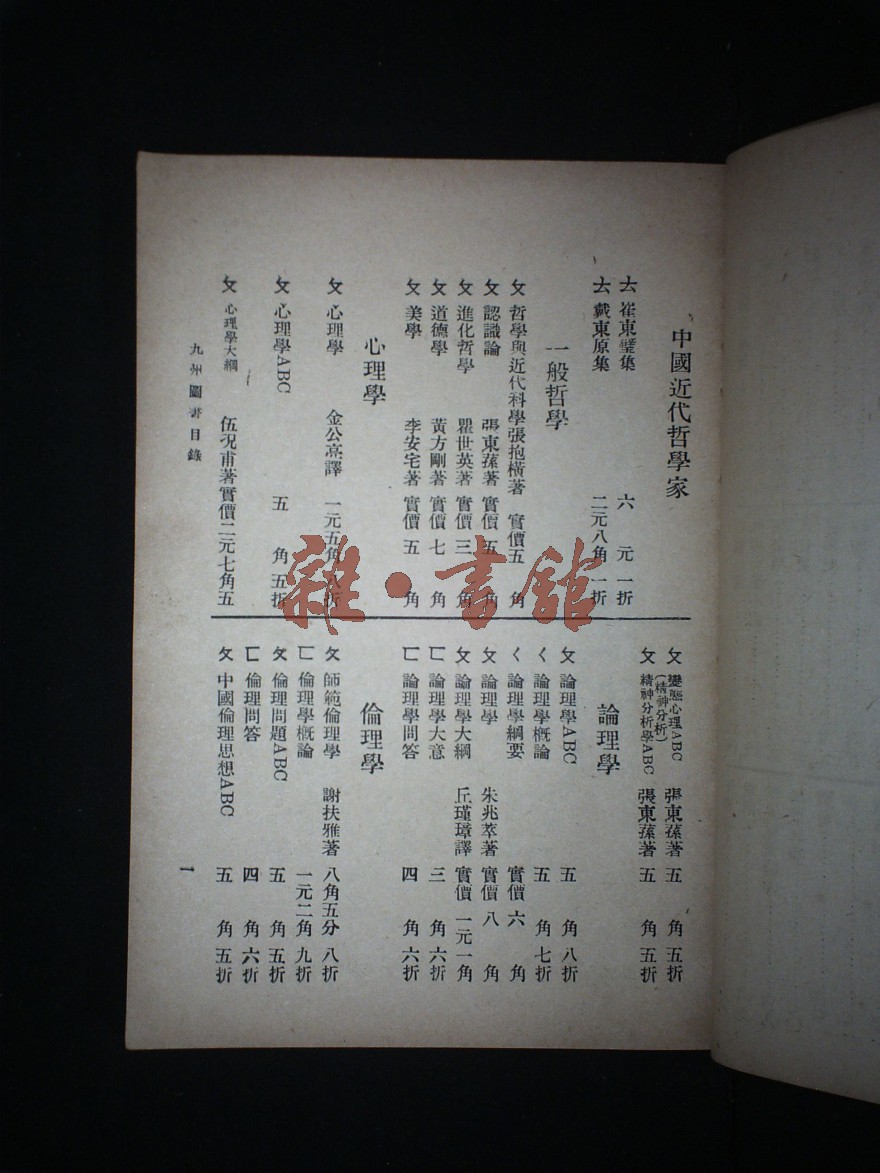 中國近代哲學家
㐫 崔東璧集 六元一折
㐫 戴東原集 二元八角一折
一般哲學
攵 哲學與近代科學 張抱橫著 實價五角
攵 認識論 張東蓀著 實價五角
攵 進化哲學 瞿世英著 實價三角
攵 道德學 黃方剛著 實價七角
攵 美學 李安宅著 實價五角
心理學
攵 心理學 金公亮譯 一元五角八折
攵 心理學ABC 五角五折
攵 心理學大綱 伍況甫著 實價二元七角五
攵 變態心理ABC 張東蓀著 五角五折
攵 (精神分析)精神分析學ABC 張東蓀著 五角五折
論理學
攵 論理學ABC 五角八折
ㄑ 論理學概論 五角七折
ㄑ 論理學綱要 實價六角
攵 論理學 朱兆萃著 實價八角
攵 論理學大綱 丘瑾璋譯 實價一元一角
匚 論理學大意 三角六折
匚 論理學問答 四角六折
倫理學
攵 師範倫理學 謝扶雅著 八角五分八折
匚 倫理學概論 一元二角九折
攵 倫理問題ABC 五角五折
匚 倫理問答 四角六折
攵 中國倫理思想ABC 五角五折
九州圖書目錄
一
雜·書館